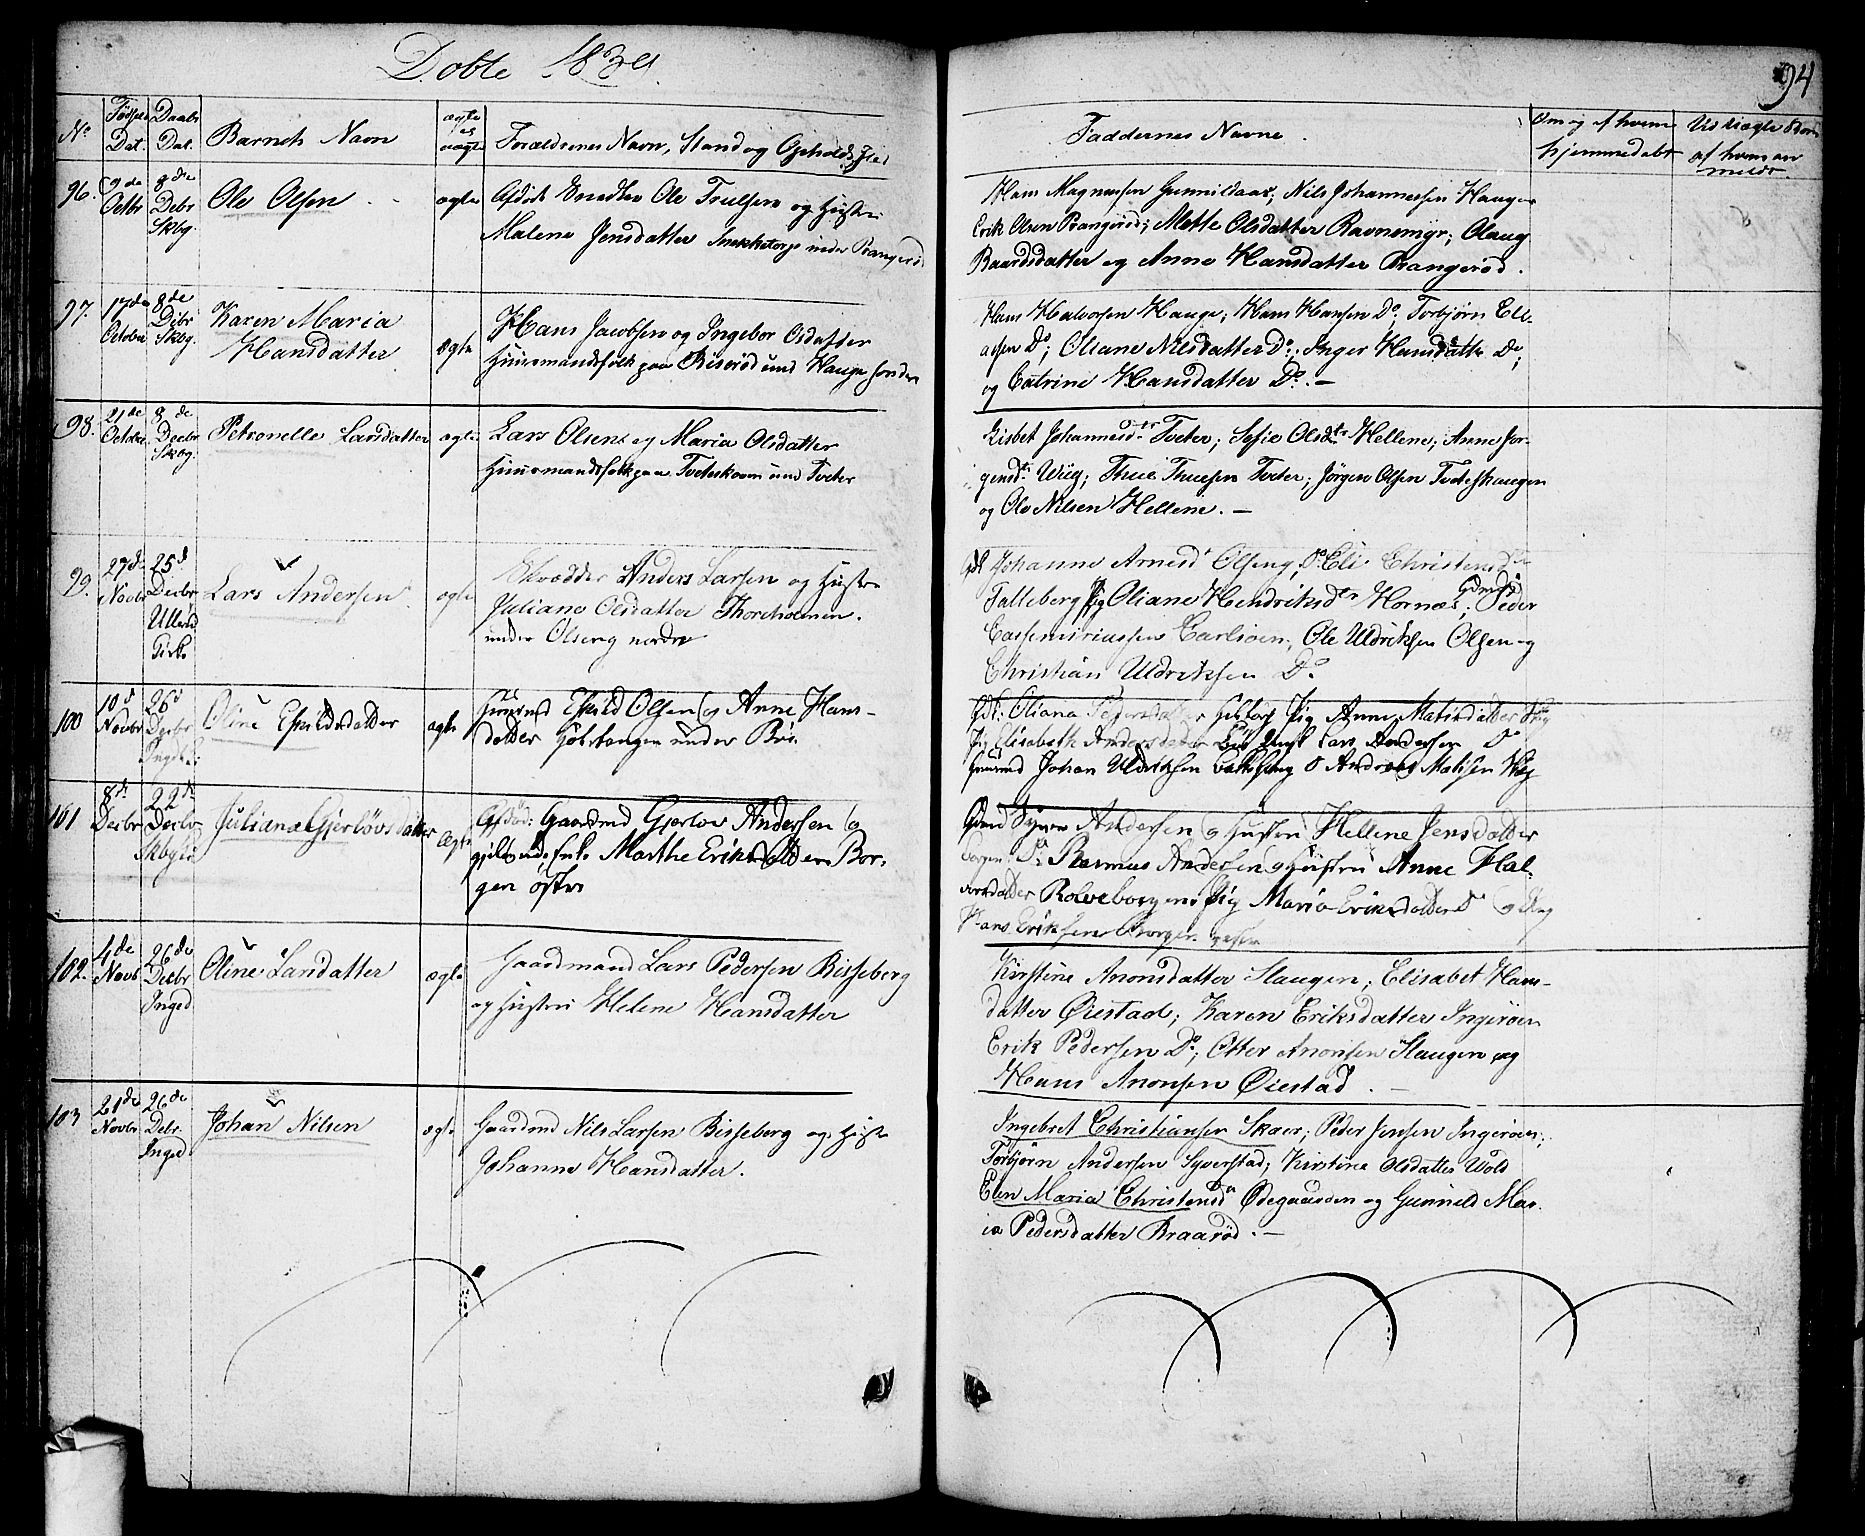 Døbte 1839
94
No
Fødsels Dat.
Daabs Dat.
Barnets Navn
ægte og uægte
Forældrenes Navn, Stand og Opholds Sted
Faddernes Navne.
Om og af hvem hjemmedøbt
Ved uægte Børn af hvem anmeldt
96.
9de Octbr
8de Debr Skbg.
Ole Olsen
ægte
Afdøde Ole Trulsen og Hustru
Malene Jensdatter under Prangerød
Hans Magnusen Gunnildaas; Nils Johannesen Hauger
Erik Olsen Prangerød; Mette Olsdatter Ravnemyr; Olaug
Baardsdatter og Anne Hansdatter Prangerød.
97.
17de October
8de Debr Skbg.
Karen Maria
Hansdatter
ægte
Hans Jacobsen og Ingebor Olsdatter
Huusmandsfolk paa Biserød und Hauge søndre
Hans Halvorsen Hauge; Hans Hansen Do; Torbjørn Eli-
assen Do; Oliane Nilsdatter Do; Inger Hansdatter Do;
og Catrine Hansdatter Do. —
98.
21de October
8de Decbr Skbg.
Petronelle Larsdatter
ægte
Lars Olsen og Maria Olsdatter
Huusmandsfolk paa Tveteskoven und Tveter
Lisbet Johannesdtr Tveter; Sofie Olsdtr Hellene; Anne Jør-
gensdtr Wiig; Thue Thuesen Tveter; Jørgen Olsen Tveteshaugen
og Ole Nilsen Hellene. —
99.
27de Novbr
25d Decbr Ullerud Kirke
Lars Andersen
ægte
Skrædder Anders Larsen og Hustru
Juliane Olsdatter Thorsholmen.
under Ølseng nordre
Johanne Arnesd Ølseng; Do Eli Christensdtr
Talleberg Pig Oliane Hendriksdtr Hornæs; Gdmd Peder
Cassemiriussen Carlsøen; Ole Uldriksen Olsen og
Christian Uldriksen Do
100
10d Novbr
26d Decbr
Oline Eskildsdatter
ægte
Huusmd Eskild Olsen og Anne Hans-
datter under Bøe
Oliana Pedersdatter Pig Anne Mathisdatter
Pig Elisabeth Andersdatter Lars Andersen Do
Huusmd Johan Uldriksen og Andreas Matisen Wiig
101
8d Decbr
22d Decbr Skbgkr
Juliana Gjerløvsdatter
ægte
Afdød: Gaardmd Gjerløv Andersen og
Enke Marthe Eriksdatter Bor-
gen østre
Gdmd Andersen og Hustru Hellene Jensdatter
Borgen; Do Rasmus Andersen og Hustru Anne Hal-
vorsdatter Rolveborgen; Pig Maria Eriksdatter Do og Ung
Hans Eriksen Borgen
102.
4de Novb
26de Decbr Inged
Oline Larsdatter
ægte
Gaardmand Lars Pedersen Bisseberg
og Hustru Helene Hansdatter
Kirstine Anonsdatter Haugen; Elisabet Hans-
datter Øiestad; Karen Eriksdatter Ingerøen
Erik Pedersen Do; Otter Anonsen Haugen og
Hans Anonsen Øiestad. —
103
21de Novbr
26de Debr. Inged
Johan Nilsen
ægte
Gaardmd Nils Larsen Bisseberg og Hustru
Johanne Hansdatter.
Ingebret Christiansen Skaer; Peder Jensen Ingerøen;
Torbjørn Andersen Syverstad; Kirstine Olsdatter Wold
Elen Maria Christensdtr Ødegaarden og Gunnild Mar-
ia Pedersdatter Braarød. —